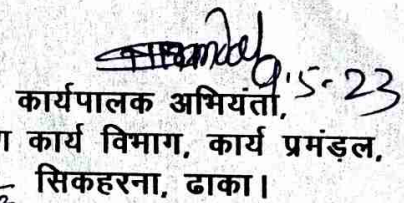 9.5-23
कार्यपालक अभियंता,
कार्य विभाग, कार्य प्रमंड़ल,
सिकहरना, ढाका।